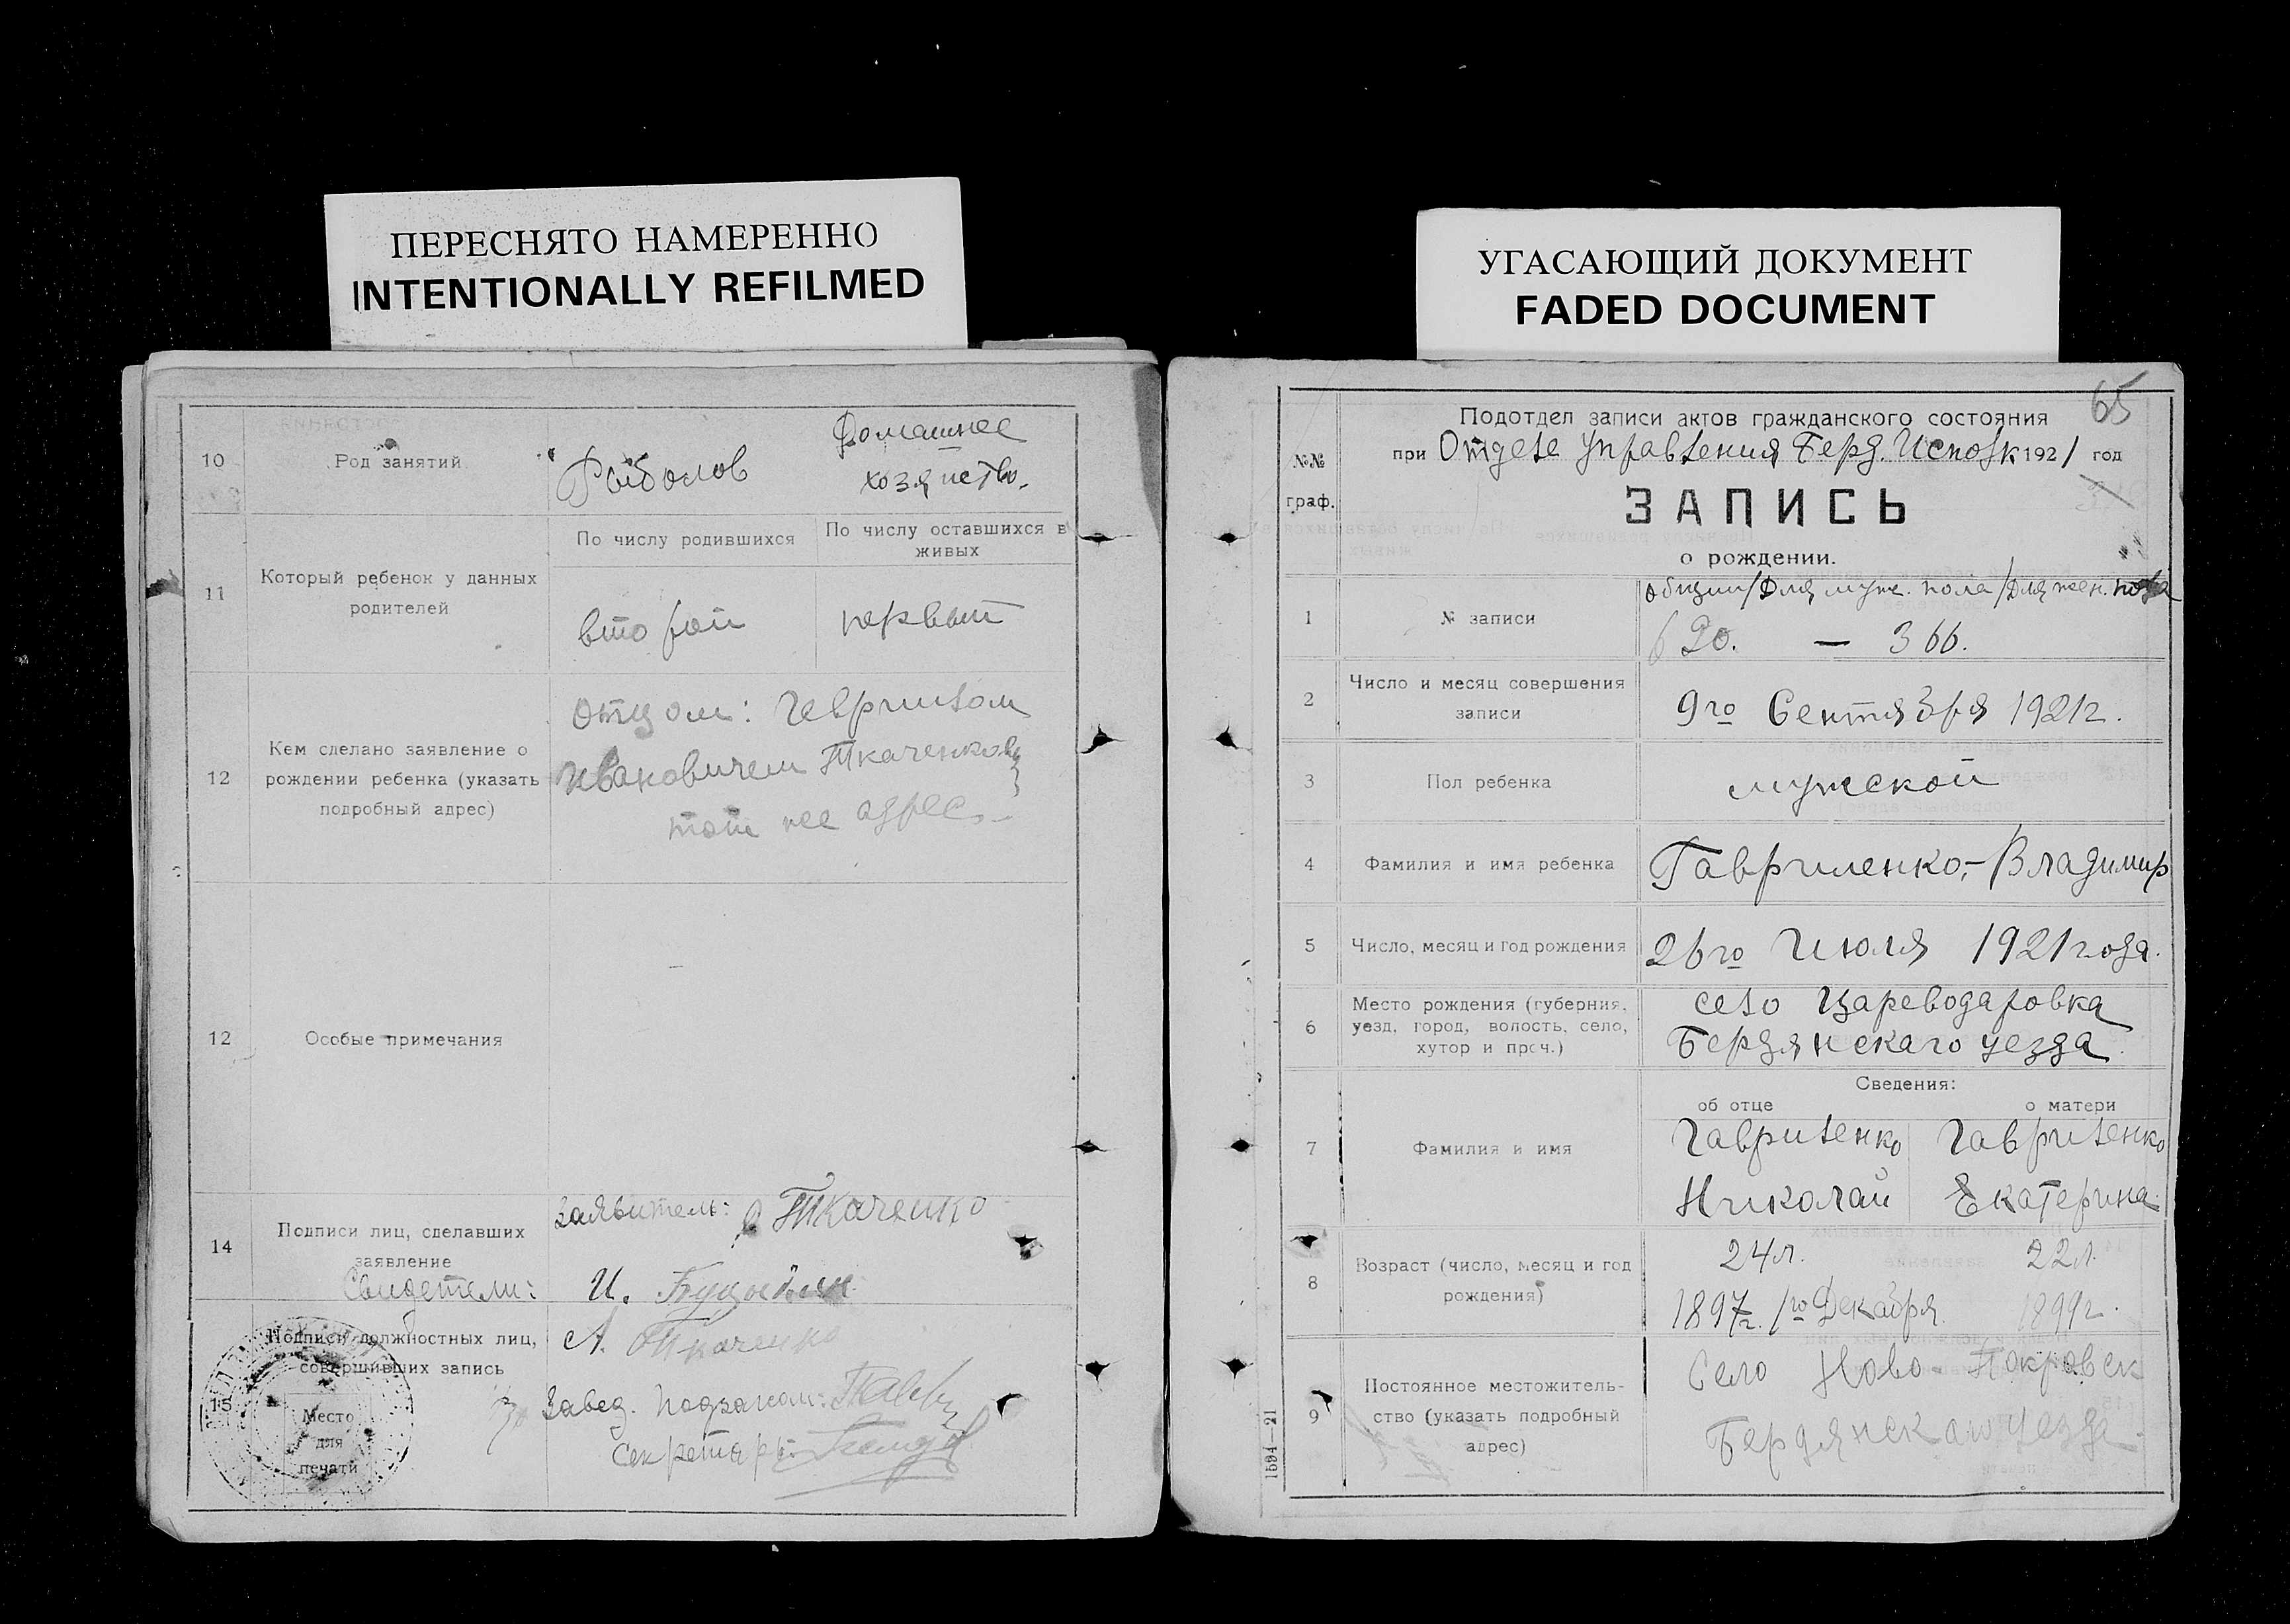 ПЕРЕСНЯТО НАМЕРЕННО
INTENTIONALLY REFILMED
УГАСАЮЩИЙ ДОКУМЕНТ
FADED DOCUMENT
10
Род занятий
Рыболов
Домашнее
хозяйство.
11
Который ребенок у данных
родителей
По числу родившихся
По числу оставшихся в
живых
второй
первый
12
Кем сделано заявление о
рождении ребенка (указать
подробный адрес)
Отцом: Гавриилом
Ивановичем Ткаченково
тот же адрес
12
Особые примечания
14
Подписи лиц, сделавших
заявление
заявитель: Ткаченко
Свидетели:
И.
15
Подписи должностных лиц,
совершивших запись
А. Ткаченко
Завед. Подзагсом:
Секретарь:
Место
для
печати
65
№№
граф.
Подотдел записи актов гражданского состояния
при Отделе Управления Берд. Исполк 1921 год
ЗАПИСЬ
о рождении.
1
№ записи
общий/Для муж. пола/Для жен. пола
620. — 366.
2
Число и месяц совершения
записи
9го Сентября 1921г.
3
Пол ребенка
мужской
4
Фамилия и имя ребенка
Гавриленко,-Владимир
5
Число, месяц и год рождения
26го Июля 1921 года.
6
Место рождения (губерния,
уезд, город, волость, село,
хутор и проч.)
село Цареводаровка
Бердянскаго уезда.
Сведения:
об отце
о матери
7
Фамилия и имя
Гавриленко
Николай
Гавриленко
Екатерина
8
Возраст (число, месяц и год
рождения)
24 л.
1897г. 1го Декабря.
22 л.
1899г.
9
Постоянное местожитель-
ство (указать подробный
адрес)
Село Ново-Покровск
Бердянскаго уезда
1594—21